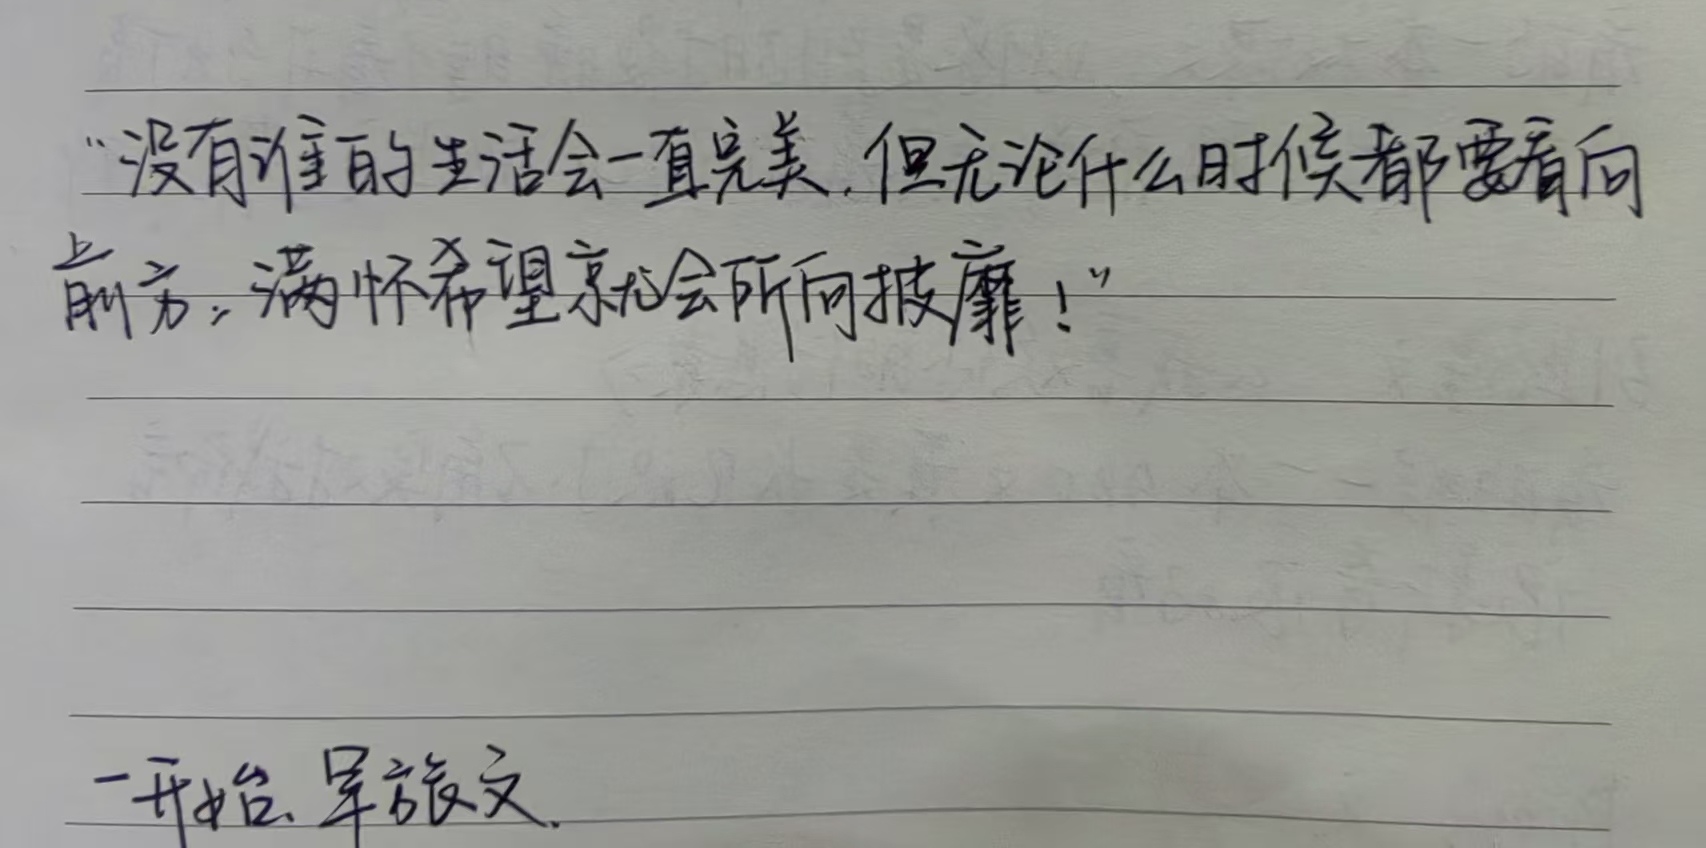 “没有谁的生活会一直完美，但无论什么时候都要看向
前方，满怀希望就会所向披靡！”
一开始、军旅文.